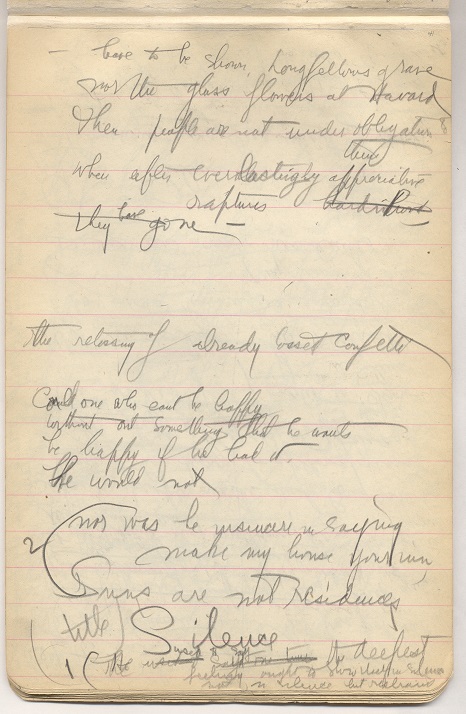 — have to be shown Longfellows grave
nor the glass flowers at Havard
Then people are not under obligation
them
when after everlastingly appreciative
raptures
they have gone —
the retossing of already tossed confetti
Could one who cant be happy
without out something that he wants
be happy if he had it.
He would not
2 nor was he insincere in saying
make my house your inn
Inns are not residences
title Silence
1 ( He used to say
the deepest
feeling ought to show itself in silence
not in silence but restraint